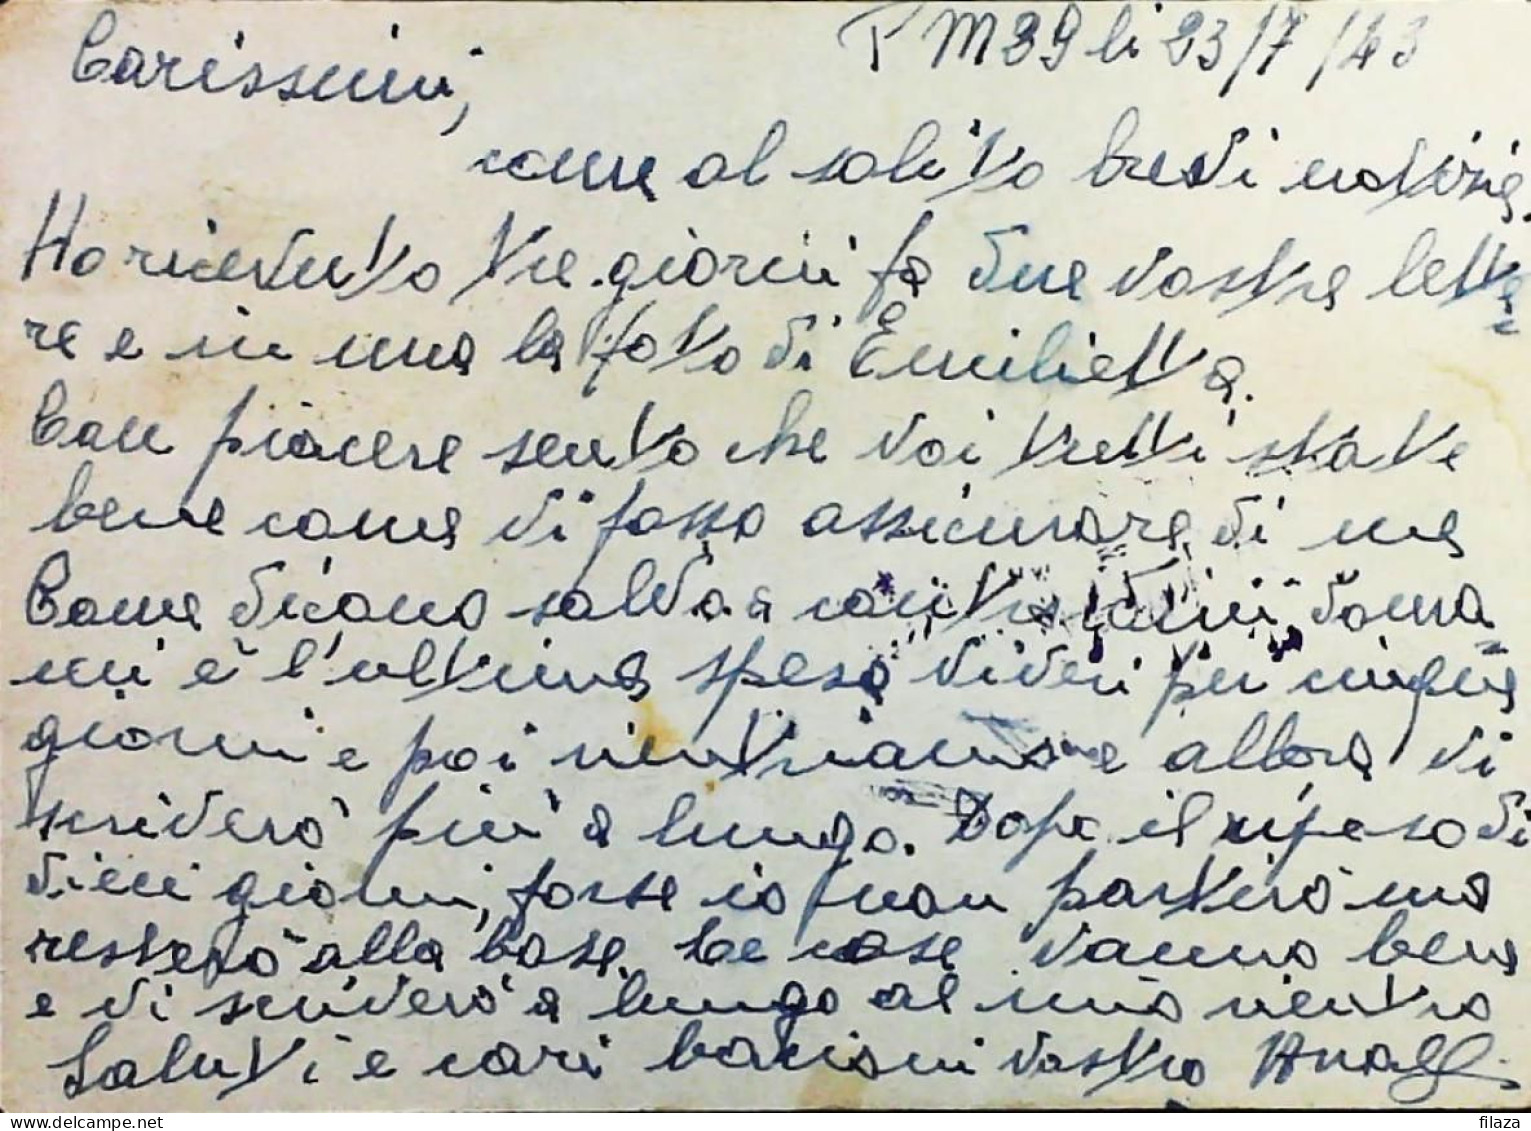 P M 39 li 23/7/43
Carissimi,
come al solito brevi notizie.
Ho ricevuto tre giorni fa due vostre lette=
re e in una la foto di Emilietta.
Con piacere sento che voi tutti state
bene come vi posso assicurare di me
Come dicono salvo contrordini, doma=
ni è l'ultima spesa viveri per cinque
giorni e poi rientriamo e allora vi
scriverò più a lungo. Dopo il riposo di
dieci giorni, forse io non partirò ma
resterò alla base. Le cose vanno bene
e vi scriverò a lungo al mio rientro
Saluti e cari bacioni vostro
filaza